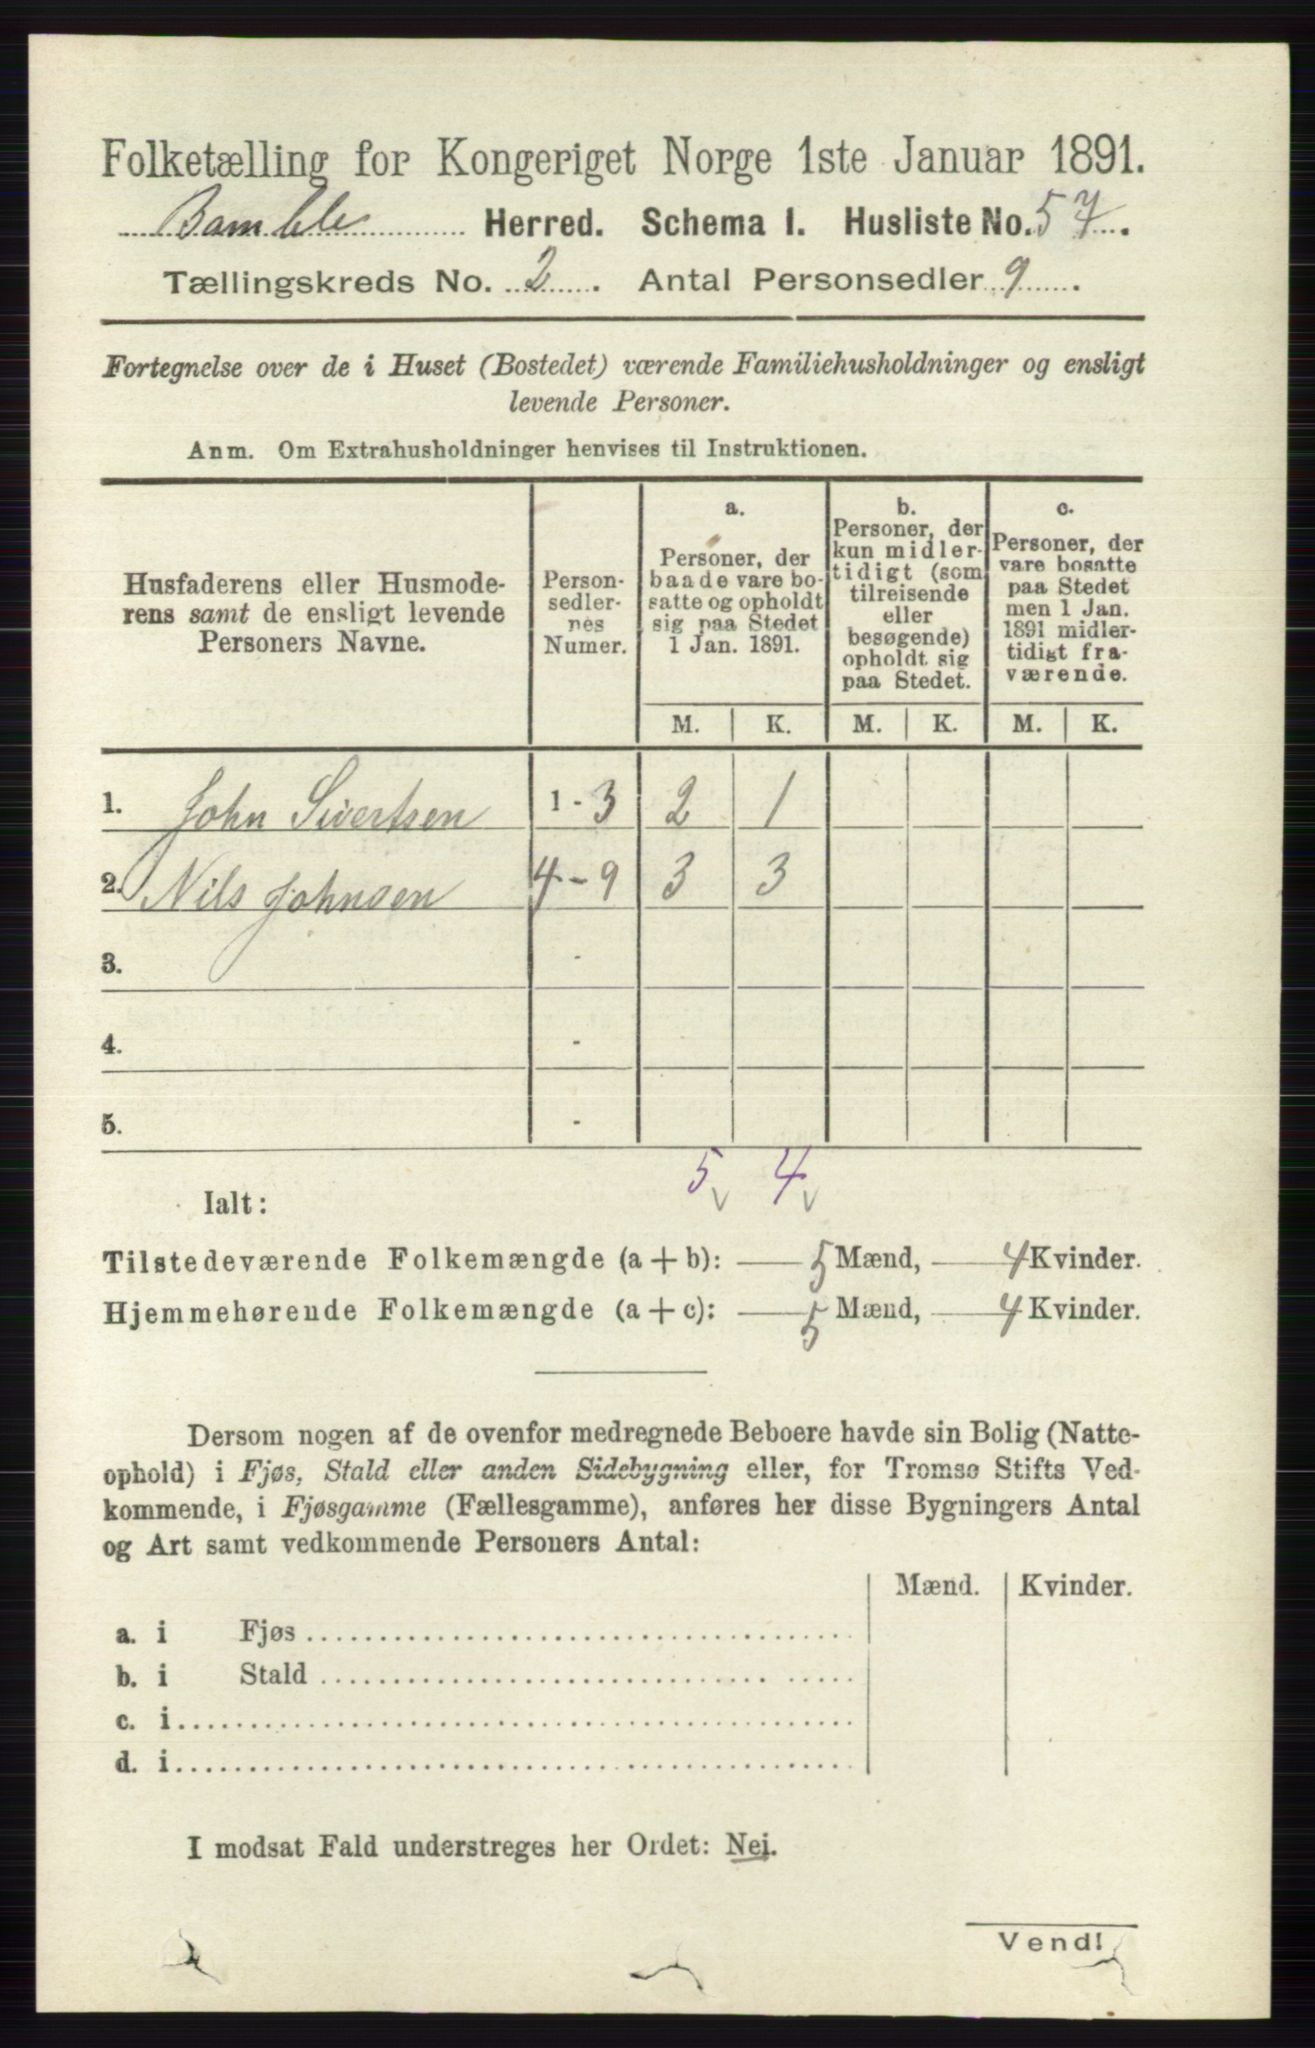 Folketælling for Kongeriget Norge 1ste Januar 1891.
Bamble Herred. Schema I. Husliste No. 57.
Tællingskreds No. 2. Antal Personsedler 9.
Fortegnelse over de i Huset (Bostedet) værende Familiehusholdninger og ensligt
levende Personer.
Anm. Om Extrahusholdninger henvises til Instruktionen.
Husfaderens eller Husmode-
rens samt de ensligt levende
Personers Navne.
Person-
sedler-
nes
Numer.
a.
Personer, der
baade vare bo-
satte og opholdt
sig paa Stedet
1 Jan. 1891.
b.
Personer, der
kun midler-
tidigt (som
tilreisende
eller
besøgende)
opholdt sig
paa Stedet.
c.
Personer, der
vare bosatte
paa Stedet
men 1 Jan.
1891 midler-
tidigt fra-
værende.
M. K. M. K. M. K.
1. John Sivertsen 1 - 3 2 1
2. Nils Johnsen 4 - 9 3 3
3. -
4. -
5. -
5 4
Ialt:
Tilstedeværende Folkemængde (a + b): 5 Mænd, 4 Kvinder.
Hjemmehørende Folkemængde (a + c): 5 Mænd, 4 Kvinder.
Dersom nogen af de ovenfor medregnede Beboere havde sin Bolig (Natte-
ophold) i Fjøs, Stald eller anden Sidebygning eller, for Tromsø Stifts Ved-
kommende, i Fjøsgamme (Fællesgamme), anføres her disse Bygningers Antal
og Art samt vedkommende Personers Antal:
Mænd. Kvinder.
a. i Fjøs
b. i Stald
c. i
d. i
I modsat Fald understreges her Ordet: Nei.
Vend!